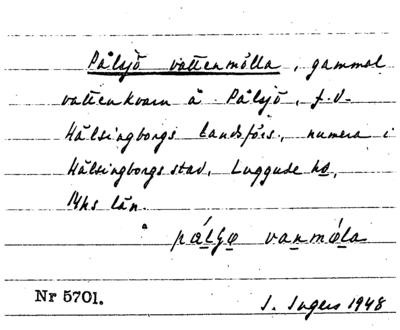 Pålsjö vattenmölla, gammal
vattenkvarn å Pålsjö, f.d.
Hälsingborgs landsförs., numera i
Hälsingborgs stad, Luggude hd,
Mhs län.
pålʃø vanmöla
Nr 5701.
I. Ingers 1948